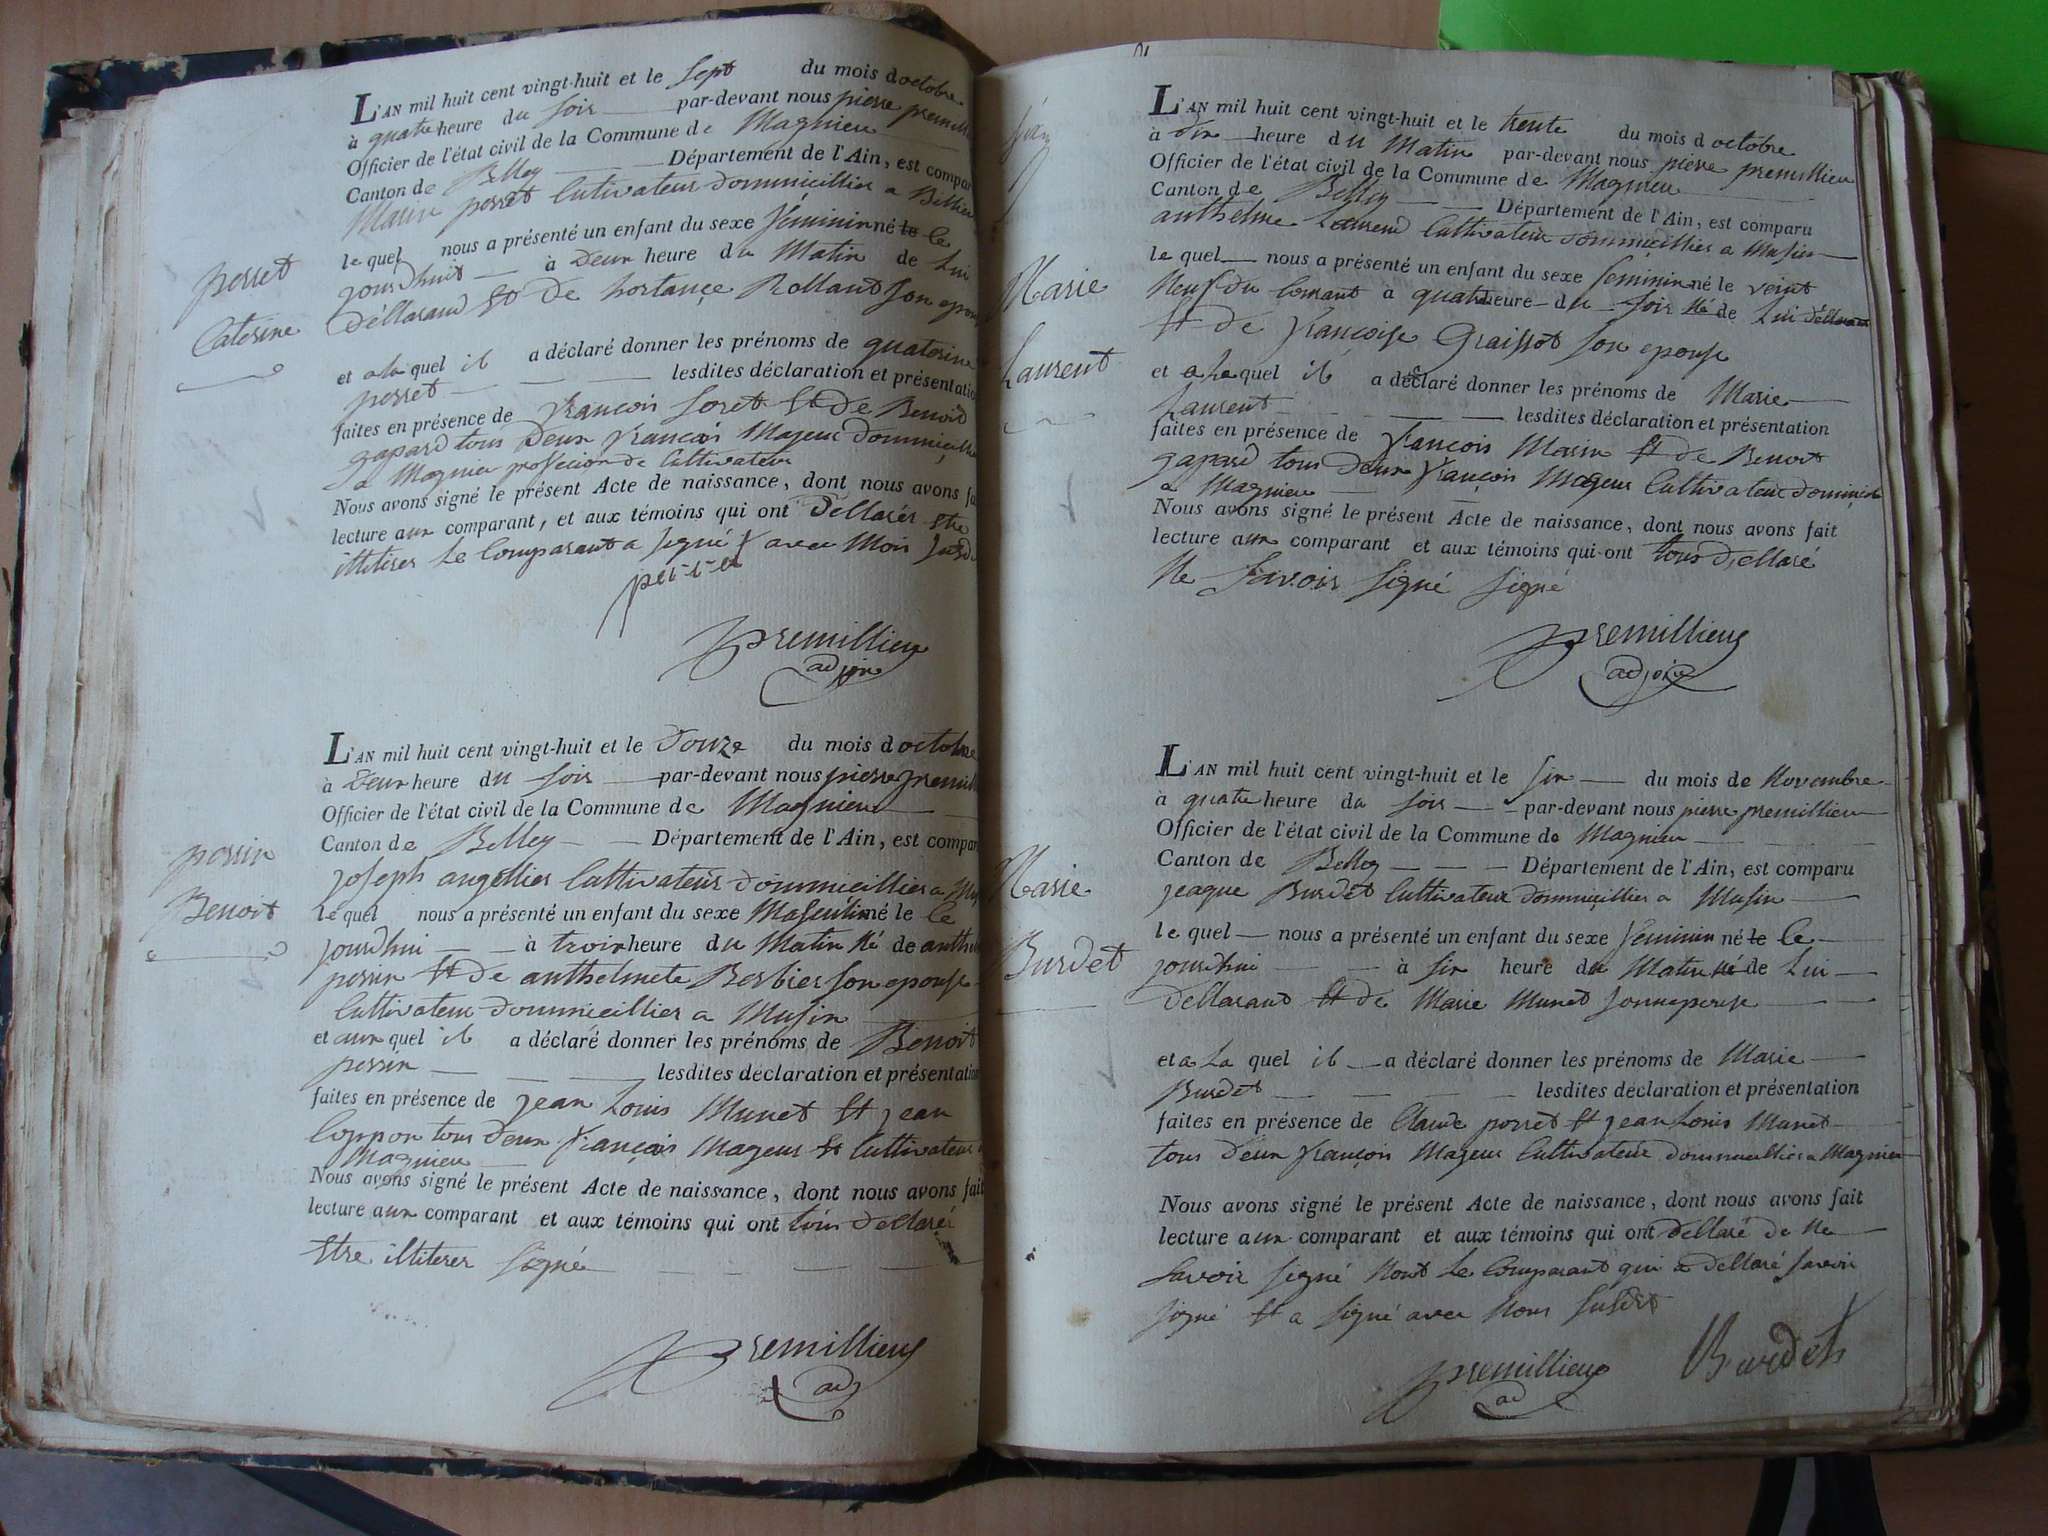 L'AN mil huit cent vingt-huit et le sept du mois d octobre
à quatre heure du soir par-devant nous pierre premill
Officier de l'état civil de la Commune de Magnieu
Canton de Belley Département de l'Ain, est compar
Marin perret Cultivateur dommicillier a Billieu
le quel nous a présenté un enfant du sexe féminin né le ce
jourdhuit à deux heure du Matin de Lui
perret
Déllarand Et De hortançe Rolland son epou
Caterine
et a la quel il a déclaré donner les prénoms de quaterine
perret lesdites déclaration et présentatio
faites en présence de françois soret Et De Benoid
gapard tous Deux françois Majeur Dommicilli
a Magnieu profecion de Cultivateur
Nous avons signé le présent Acte de naissance, dont nous avons fai
lecture aux comparant, et aux témoins qui ont Dellarér Etre
illiterer Le Comparant a signé avec Moi susd
perret
premillieu
adjoin
L'AN mil huit cent vingt-huit et le Douze du mois d octobre
à Deux heure du soir par-devant nous pierre premill
Officier de l'état civil de la Commune de Magnieu
Canton de Belley Département de l'Ain, est compar
perrin
joseph angellier Cultivateur dommicillier a Mus
Benoit
le quel nous a présenté un enfant du sexe Masculin né le ce
jourdhui à trois heure du Matin né de anth
perrin Et De anthelmete Berbier son epouse
Cultivateur Dommicillier a Musin
et aux quel il a déclaré donner les prénoms de Benoit
perrin lesdites déclaration et présentation
faites en présence de jean Louis Munet Et jean
Coppon tous Deux françois Majeur Et Cultivateur
Magnieu
Nous avons signé le présent Acte de naissance, dont nous avons fait
lecture aux comparant et aux témoins qui ont tous Dellarér
Etre illiterer signé
premillieu
ad
L'AN mil huit cent vingt-huit et le trente du mois d octobre
à dix heure du Matin par-devant nous pierre premillieu
Officier de l'état civil de la Commune de Magnieu
Canton de Belley Département de l'Ain, est comparu
anthelme Laurend Cultivateur dommicillier a Musin
le quel nous a présenté un enfant du sexe feminin né le veint
Marie
Neuf du Courant à quatre heure du soir né de Lui déllarant
Et de françoise Graissot son epouse
Laurent
et a La quel il a déclaré donner les prénoms de Marie
Laurent lesdites déclaration et présentation
faites en présence de françois Marin Et de Benoit
gapard tous deux françois Majeur Cultivateur dommicili
a Magnieu
Nous avons signé le présent Acte de naissance, dont nous avons fait
lecture aux comparant et aux témoins qui ont tous Dellaré
Ne savoir signé signé
premillieu
adjoin
L'AN mil huit cent vingt-huit et le six du mois de Novembre
à quatre heure du soir par-devant nous pierre premillieu
Officier de l'état civil de la Commune de Magnieu
Canton de Belley Département de l'Ain, est comparu
Marie
jeaque Burdet Cultivateur dommicillier a Musin
le quel nous a présenté un enfant du sexe feminin né le ce
Burdet
jourdhui à six heure du Matin né de Lui
dellarand Et de Marie Munet sonneperse
et a La quel il a déclaré donner les prénoms de Marie
Burdet lesdites déclaration et présentation
faites en présence de Claude perret Et jean Louis Munet
tous deux françois Majeur Cultivateur dommicillier a Magnieu
Nous avons signé le présent Acte de naissance, dont nous avons fait
lecture aux comparant et aux témoins qui ont dellaré de Ne
savoir signé Nont Le Comparant qui a dellaré savoir
signé Et a signé avec Nous susdit
premillieu
ad
Burdet